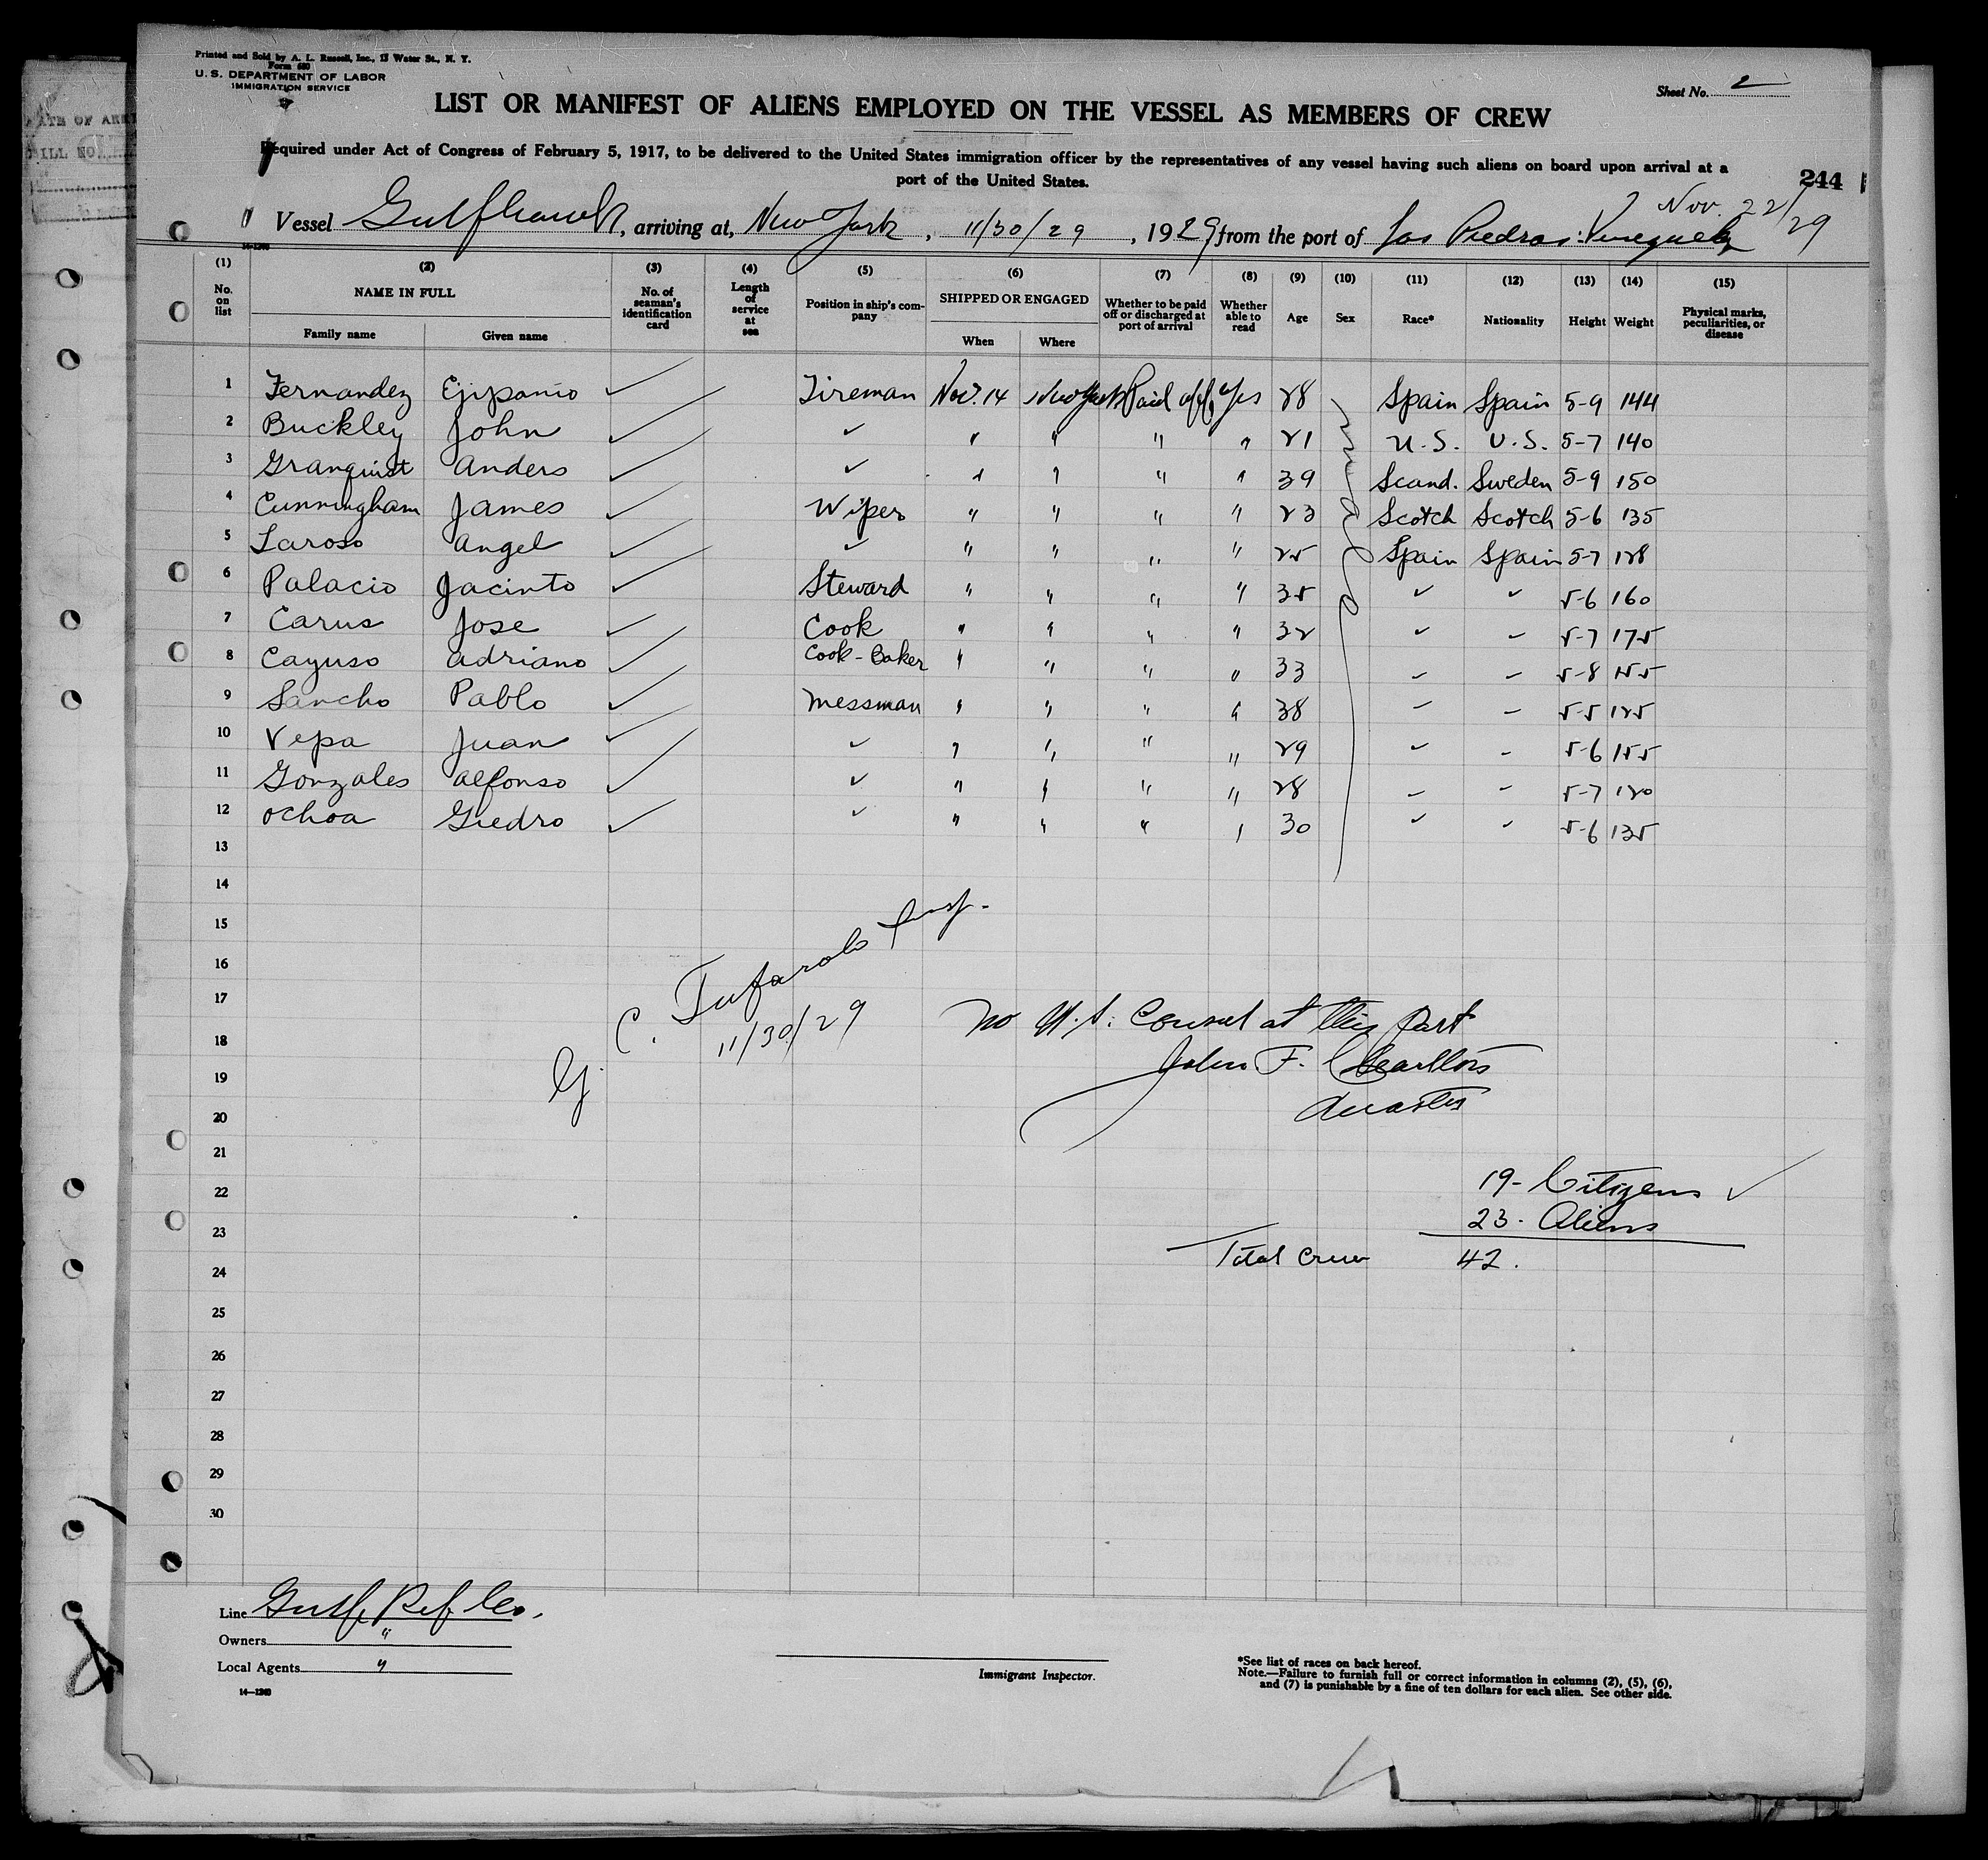 Printed and Sold by A. L. Russell, Inc., 13 Water St., N. Y.
Form 680
U. S. DEPARTMENT OF LABOR
IMMIGRATION SERVICE
Sheet No. 2
LIST OR MANIFEST OF ALIENS EMPLOYED ON THE VESSEL AS MEMBERS OF CREW
Required under Act of Congress of February 5, 1917, to be delivered to the United States immigration officer by the representatives of any vessel having such aliens on board upon arrival at a
port of the United States.
244
Nov. 22/29
Vessel Gulfhawk, arriving at, New York, 11/30/29, 1929 from the port of Las Piedras: Venezuela
(1) (2) (3) (4) (5) (6) (7) (8) (9) (10) (11) (12) (13) (14) (15)
No. on list NAME IN FULL Family name Given name No. of seaman's identification card Length of service at sea Position in ship's company SHIPPED OR ENGAGED When Where Whether to be paid off or discharged at port of arrival Whether able to read Age Sex Race* Nationality Height Weight Physical marks, peculiarities, or disease
1 Fernandez Ejipanio ✓ Fireman Nov. 14 New York Paid off, Yes 28 Spain Spain 5-9 144
2 Buckley John ✓ ✓ " " " " 21 U.S. U.S. 5-7 140
3 Granquist Anders ✓ ✓ " " " " 39 Scand. Sweden 5-9 150
4 Cunningham James ✓ Wiper " " " " 23 Scotch Scotch 5-6 135
5 Laroso Angel ✓ ✓ " " " " 25 Spain Spain 5-7 128
6 Palacio Jacinto ✓ Steward " " " " 35 ✓ ✓ 5-6 160
7 Carus Jose ✓ Cook " " " " 32 ✓ ✓ 5-7 175
8 Cayuso Adriano ✓ Cook-Baker " " " " 33 ✓ ✓ 5-8 155
9 Sancho Pablo ✓ Messman " " " " 38 ✓ ✓ 5-5 125
10 Vepa Juan ✓ ✓ " " " " 29 ✓ ✓ 5-6 155
11 Gonzales Alfonso ✓ ✓ " " " " 28 ✓ ✓ 5-7 120
12 Ochoa Giedro ✓ ✓ " " " " 30 ✓ ✓ 5-6 135
13
14
15
16
17
18
19
20
21
22
23
24
25
26
27
28
29
30
G. C. Tufarolo Insp.
11/30/29
No U.S. Consul at this Port
John F.
Master
19- Citizens ✓
23. Aliens
Total Crew 42.
Line Gulf Ref Co.
Owners "
Local Agents "
14-1240
Immigrant Inspector.
*See list of races on back hereof.
Note.—Failure to furnish full or correct information in columns (2), (5), (6),
and (7) is punishable by a fine of ten dollars for each alien. See other side.